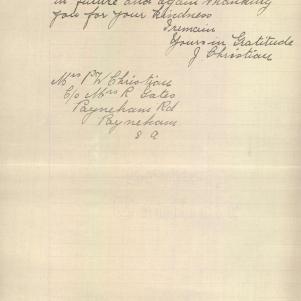 in future and again thanking
you for your kindness
I remain
Yours in Gratitude
J Christian
Mrs P W Christian
C/o Mrs R Gates
Payneham Rd
Payneham
S A